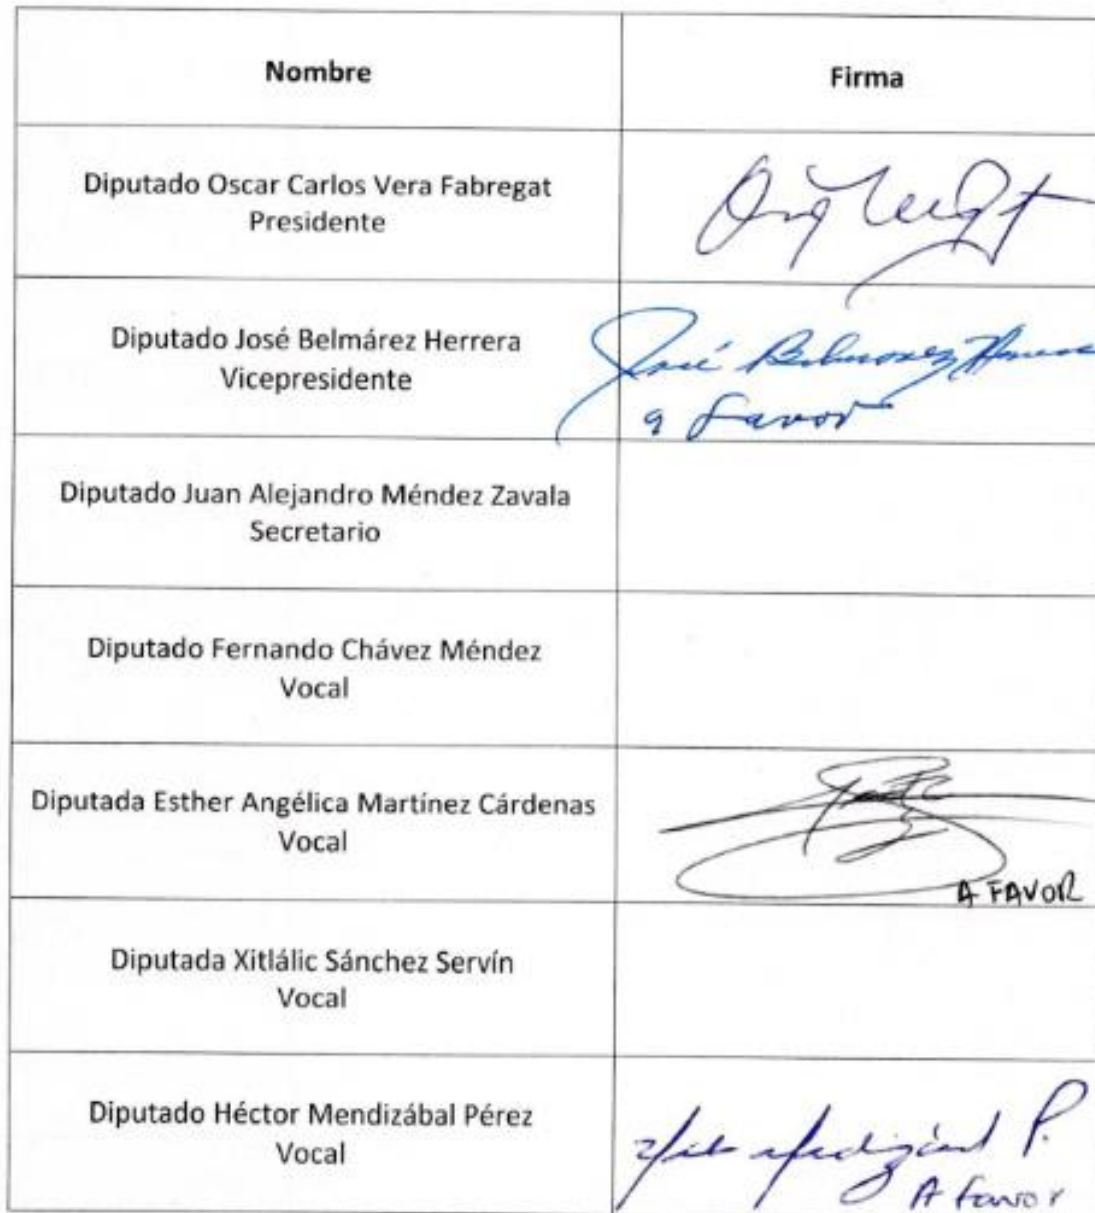 Nombre
Firma
Diputado Oscar Carlos Vera Fabregat
Presidente
Diputado José Belmárez Herrera
Vicepresidente
José Belmarez Herrera
a Favor
Diputado Juan Alejandro Méndez Zavala
Secretario
Diputado Fernando Chávez Méndez
Vocal
Diputada Esther Angélica Martínez Cárdenas
Vocal
A FAVOR
Diputada Xitlálic Sánchez Servín
Vocal
Diputado Héctor Mendizábal Pérez
Vocal
P.
A favor